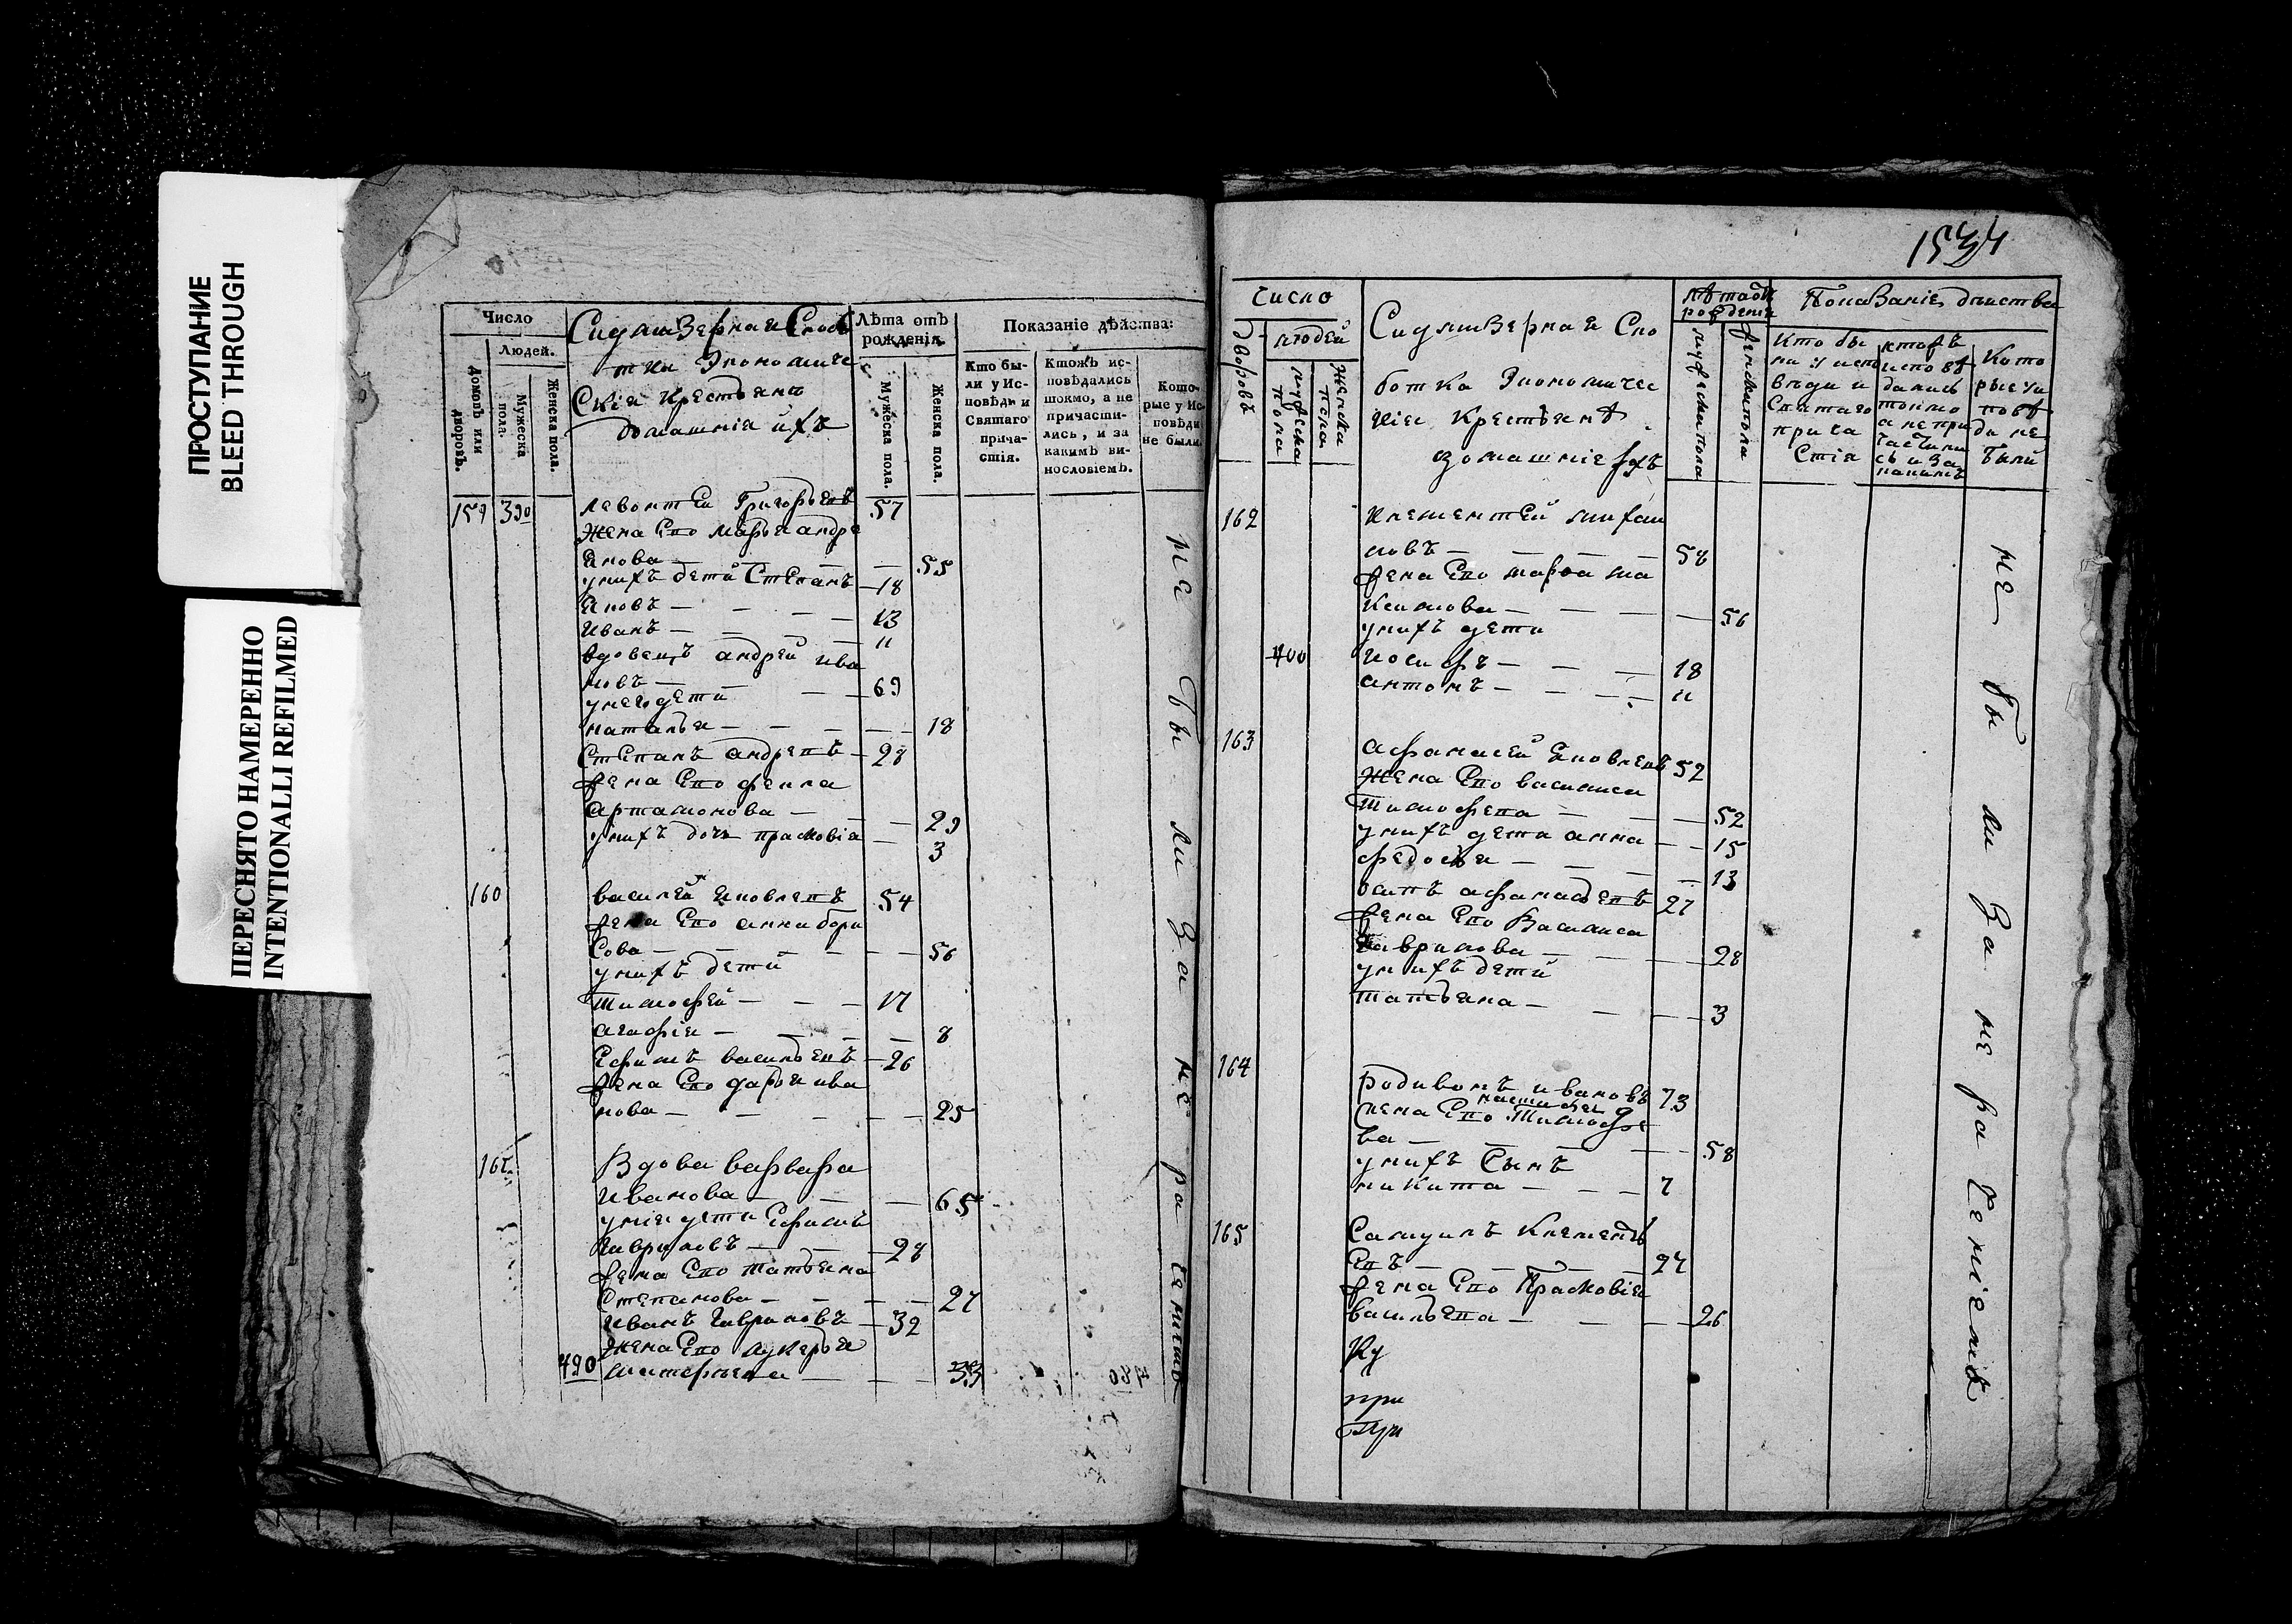 ПРОСТУПАНИЕ
BLEED THROUGH
ПЕРЕСНЯТО НАМЕРЕННО
INTENTIONALLI REFILMED
Число
Людей.
Домовъ или дворовъ.
Мужеска пола.
Женска пола.
Экономиче
скіи крестьянѣ
домашніи ихъ
Лѣта отъ
рожденія.
Мужеска пола.
Женска пола.
Показаніе дѣйства:
Кто бы-
ли у Ис-
повѣди и
Святаго
прича-
стія.
Ктожъ ис-
повѣдались
токмо, а не
причасти-
лись, и за
какимъ ви-
нословіемъ.
Кото-
рые у Ис-
повѣди
не были.
159 390 левонтеи Григорьевъ 57
жена Его марья андре
янова — 55
унихъ дети Степанъ 18
Яковъ — 13
Иванъ — 11
вдовецъ андрей ива
новъ — 69
унего дети
наталья — 18
Степанъ андреевъ — 28
жена Его фекла
артамонова — 29
унихъ дочь прасковія — 3
160 василей Яковлевъ 54
жена Его анна бори
сова — 56
унихъ дети
тимофей — 17
агафія — 8
Ефимъ васильевъ — 26
жена Его дарья ива
нова — 25
161 Вдова варвара
Иванова — 65
унея дети Ефимъ
гавриловъ — 28
жена Его татьяна
Степанова — 27
иванъ гавриловъ — 32
жена Его лукерья
490 33
не были за не ра
1534
число
дворовъ
людей
мужеска пола
женска пола
ботка Экономичес
кіи крестьянѣ
домашніе ихъ
лѣта отъ
рождения
мужеска пола
женска пола
Показаніе действа
кто бы
ли у испо
веди и
святаго
прича
стія
ктожъ
испове
дались
токмо
а не при
частили
сь и за
какимъ
Кото
рые у ис
повѣ
ди не
были
162 клементей
новъ — 58
жена Его марфа ма
ксимова — 56
унихъ дети
400 иосифъ — 18
антонъ — 11
163 афанасей Яковлевъ 52
жена Его василиса
тимофева — 52
унихъ дети анна — 15
федосья — 13
осипъ афанасьевъ 27
жена Его Василиса
гаврилова — 28
унихъ дети
татьяна — 3
164 родивонъ ивановъ 73
настасья
жена Его тимофе
ва — 58
унихъ сынъ
никита — 7
165 Самуилъ Клементь
евъ — 27
жена Его Прасковія
васильева — 26
не были за не ра